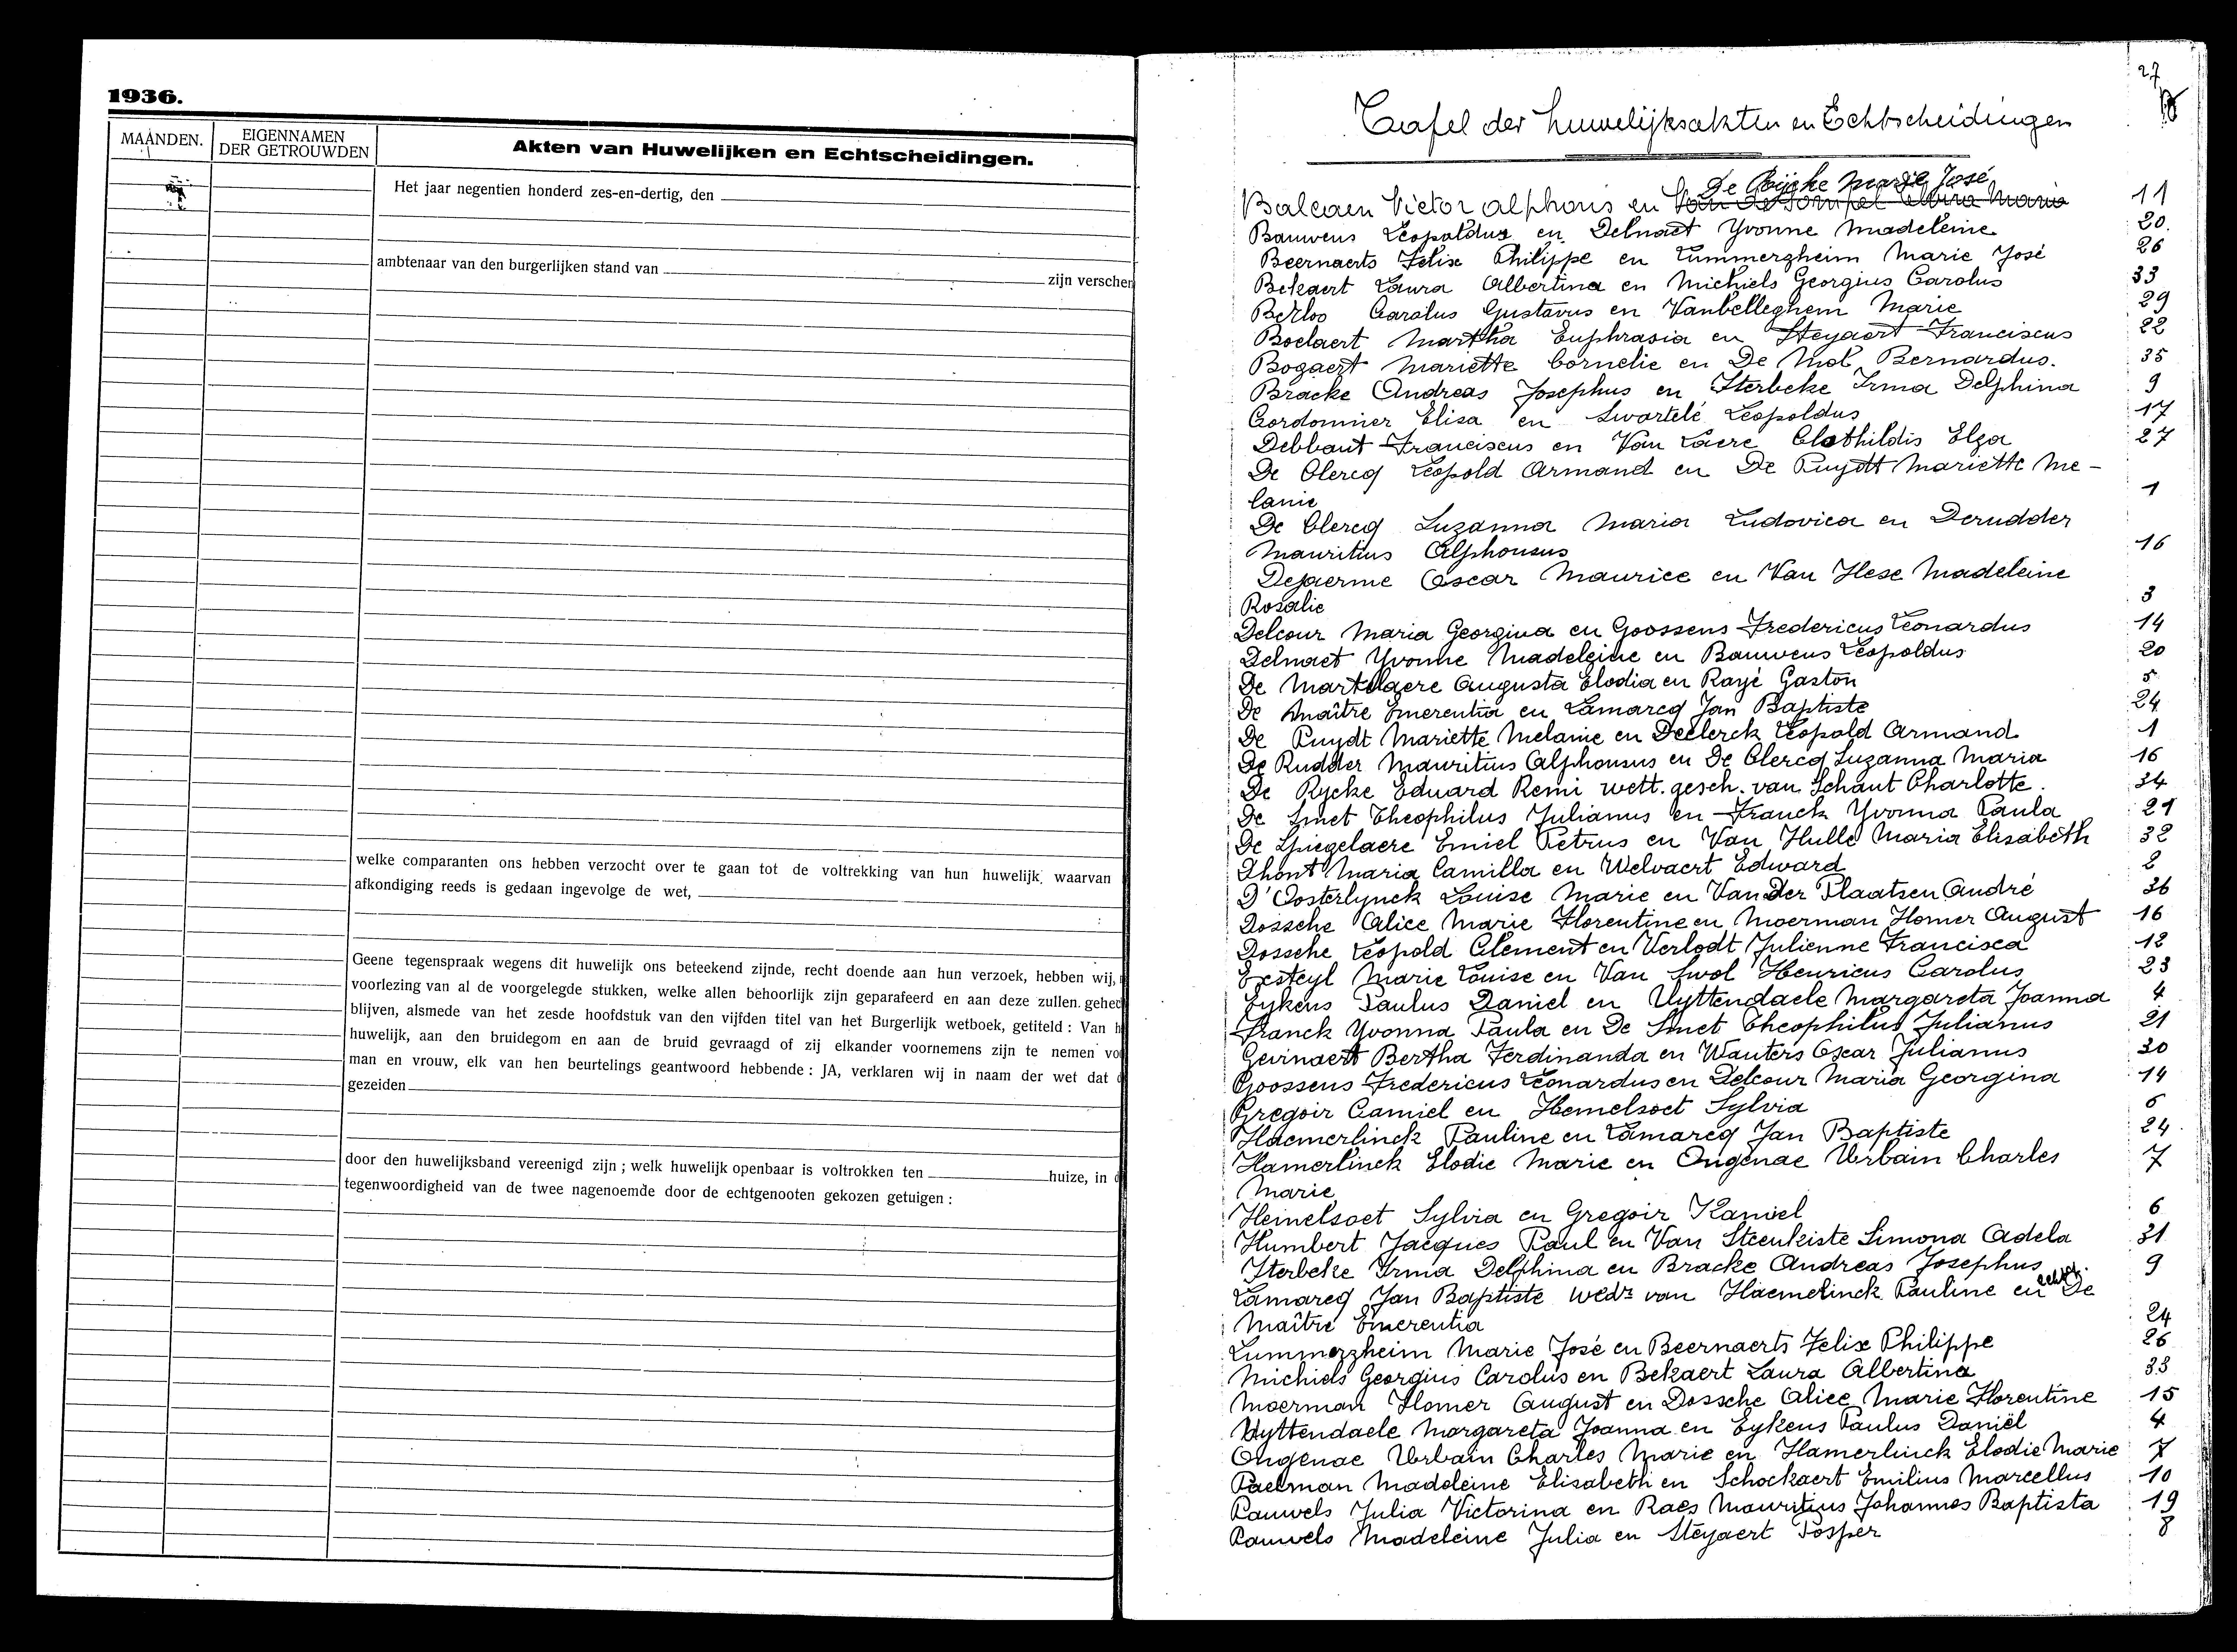 1936.
MAANDEN.
EIGENNAMEN
DER GETROUWDEN
Akten van Huwelijken en Echtscheidingen.
Het jaar negentien honderd zes-en-dertig, den
ambtenaar van den burgerlijken stand van
zijn verschen
welke comparanten ons hebben verzocht over te gaan tot de voltrekking van hun huwelijk waarvan
afkondiging reeds is gedaan ingevolge de wet,
Geene tegenspraak wegens dit huwelijk ons beteekend zijnde, recht doende aan hun verzoek, hebben wij,
voorlezing van al de voorgelegde stukken, welke allen behoorlijk zijn geparafeerd en aan deze zullen gehec
blijven, alsmede van het zesde hoofdstuk van den vijfden titel van het Burgerlijk wetboek, getiteld : Van h
huwelijk, aan den bruidegom en aan de bruid gevraagd of zij elkander voornemens zijn te nemen vo
man en vrouw, elk van hen beurtelings geantwoord hebbende : JA, verklaren wij in naam der wet dat d
gezeiden
door den huwelijksband vereenigd zijn ; welk huwelijk openbaar is voltrokken ten huize, in d
tegenwoordigheid van de twee nagenoemde door de echtgenooten gekozen getuigen :
27
Tafel der huwelijksakten en Echtscheidingen
De Rijcke Marie José
Balcaen Victor alphons en Van De Sompel Elvira Maria 11
Bauwens Leopoldus en Delnaet Yvonne Madeleine 20.
Beernaerts Felix Philippe en Lummerzheim Marie José 26
Bekaert Laura Albertina en Michiels Georgius Carolus 33
Berloo Carolus Gustavus en Vanbelleghem Marie 29
Boelaert Martha Euphrasia en Steyaert Franciscus 22
Bogaert Mariette Cornelie en De Mol Bernardus. 35
Bracke Andreas Josephus en Iterbeke Irma Delphina 9
Cordonnier Elisa en Swartelé Leopoldus 17
Debbaut Franciscus en Van Laere Clothildis Elza 27
De Clercq Leopold Armand en De Puydt Mariette Me-
lanie 1
De Clercq Suzanna Maria Ludovica en Derudder
Mauritius Alphonsus 16
Dejaerme Oscar Maurice en Van Hese Madeleine
Rosalie 3
Delcour Maria Georgina en Goossens Fredericus Leonardus 14
Delnaet Yvonne Madeleine en Bauwens Leopoldus 20
De Martelaere Augusta Elodia en Rayé Gaston 5
De Maître Emerentia en Lamarcq Jan Baptiste 24
De Puydt Mariette Melanie en Declerck Leopold Armand 1
De Rudder Mauritius Alphonsus en De Clercq Suzanna Maria 16
De Rycke Eduard Remi wett. gesch. van Schaut Charlotte. 34
De Smet Theophilus Julianus en Franck Yvonna Paula 21
De Spiegelaere Emiel Petrus en Van Hulle Maria Elisabeth 32
Dhont Maria Camilla en Welvaert Edward 2
D'Oosterlynck Louise Marie en Van Der Plaatsen André 36
Dossche Alice Marie Florentine en Moerman Homer August 16
Dossche Leopold Clement en Verlodt Julienne Francisca 12
Exsteyl Marie Louise en Van Swol Henricus Carolus 23
Eykens Paulus Daniel en Uyttendaele Margareta Joanna 4
Franck Yvonna Paula en De Smet Theophilus Julianus 21
Gevinaert Bertha Ferdinanda en Wauters Oscar Julianus 30
Goossens Fredericus Leonardus en Delcour Maria Georgina 14
Gregoir Camiel en Hemelsoet Sylvia 6
Haemerlinck Pauline en Lamarcq Jan Baptiste 24
Hamerlinck Elodie Marie en Ongenae Urbain Charles 7
Marie
Hemelsoet Sylvia en Gregoir Kamiel 6
Humbert Jacques Paul en Van Steenkiste Simona Adela 31
Iterbeke Irma Delphina en Bracke Andreas Josephus 9
Lamarcq Jan Baptiste wedr van Haemelinck Pauline en De
Maître Emerentia 24
Lummerzheim Marie José en Beernaerts Felix Philippe 26
Michiels Georgius Carolus en Bekaert Laura Albertina 33
Moerman Homer August en Dossche Alice Marie Florentine 15
Uyttendaele Margareta Joanna en Eykens Paulus Daniël 4
Ongenae Urbain Charles Marie en Hamerlinck Elodie Marie 7
Paelman Madeleine Elisabeth en Schockaert Emilius Marcellus 10
Pauwels Julia Victorina en Raes Mauritius Johannes Baptista 19
Pauwels Madeleine Julia en Steyaert Posper 8